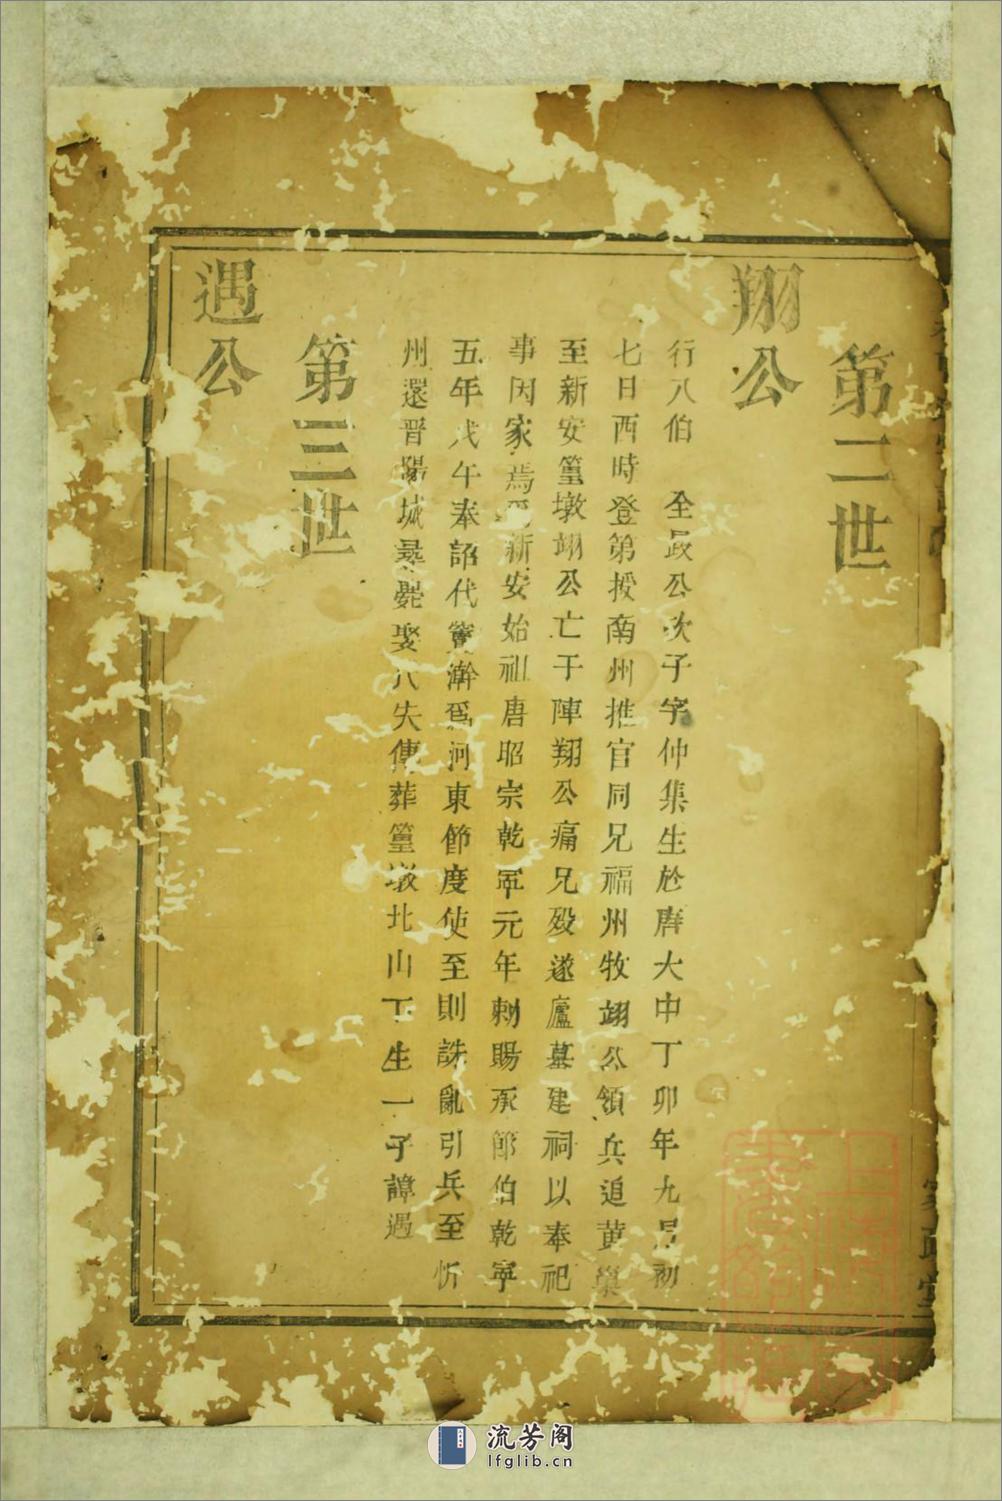 第二世
翔公
行八伯 全政公次子字仲集生於唐大中丁卯年九月初
七日酉時登第授南州推官同兄福州牧翊公領兵追黃巢
至新安篁墩翊公亡于陣翔公痛兄殁遂廬墓建祠以奉祀
事因家焉爲新安始祖唐昭宗乾寕元年勅賜承節伯乾寕
五年戊午奉詔代竇澣爲河東節度使至則誅亂引兵至忻
州還晋陽城尋薨娶八失傳葬篁墩北山下生一子諱遇
第三世
遇公
流芳阁
lfglib.cn